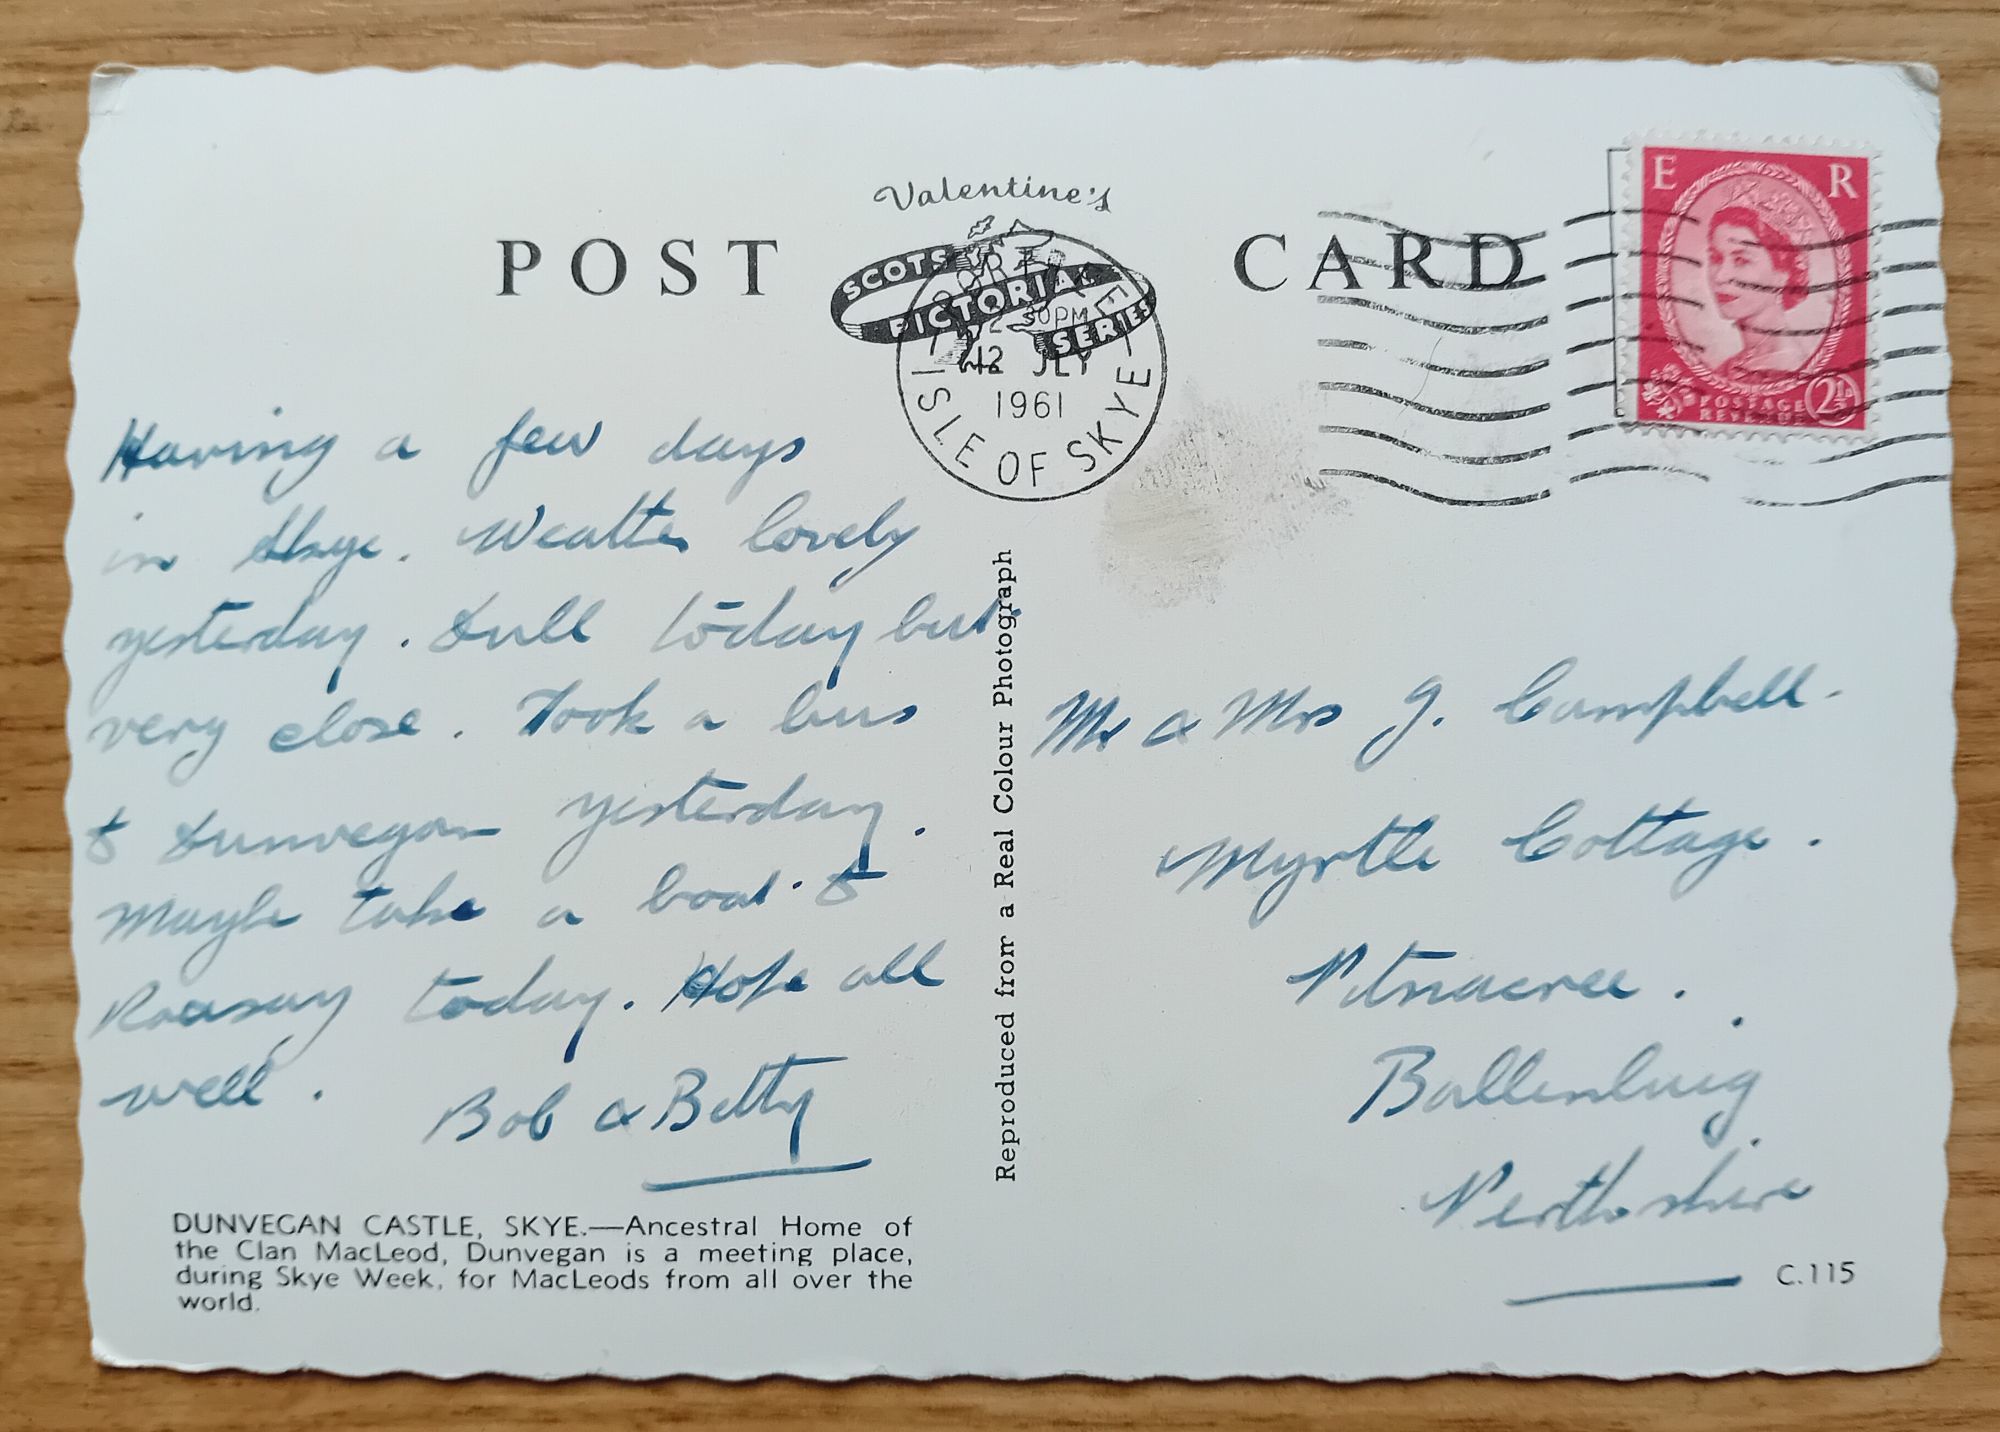 Valentine's
SCOTS
PICTORIAL
SERIES
POST CARD
PORTREE
2 30PM
12 JLY
1961
ISLE OF SKYE
E R
POSTAGE
REVENUE
2½D
Having a few days
in Skye. Weather lovely
yesterday. Dull today but
very close. Took a bus
to Dunvegan yesterday.
Maybe take a boat to
Raasay today. Hope all
well.
Bob & Betty
DUNVEGAN CASTLE, SKYE.—Ancestral Home of
the Clan MacLeod, Dunvegan is a meeting place,
during Skye Week, for MacLeods from all over the
world.
Reproduced from a Real Colour Photograph
Mr & Mrs J. Campbell.
Myrtle Cottage.
Pitnacree.
Ballinluig
Perthshire
C.115